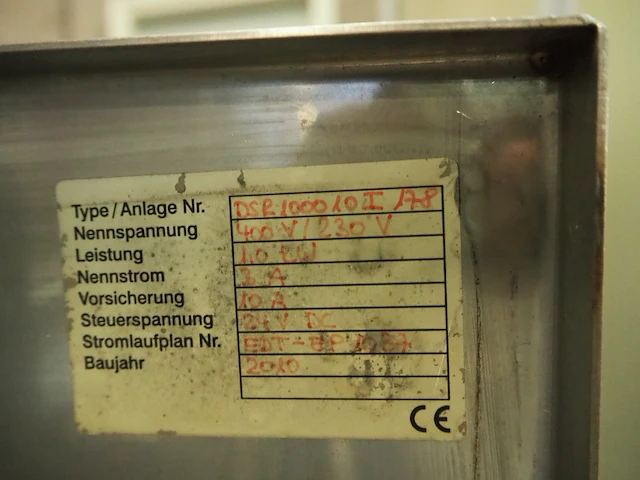 Type/Anlage Nr. DSR 1000 10 I
Nennspannung 400 V / 230 V
Leistung 1,0 KW
Nennstrom 3 A
Vorsicherung 10 A
Steuerspannung 24 V DC
Stromlaufplan Nr.
Baujahr 2010
CE